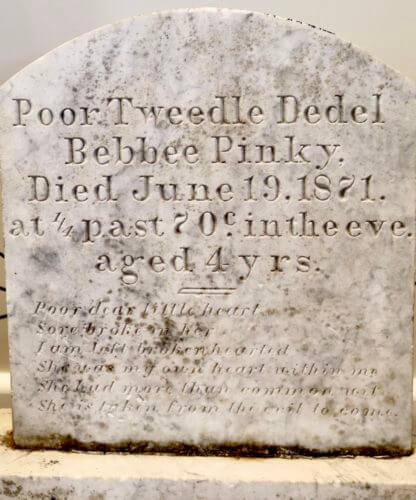 Poor Tweedle Dedel
Bebbee Pinky.
Died June 19. 1871.
at ¼ past 7 O'c. in the eve.
aged 4 yrs.
Poor dear little heart
Sore broke in her
I am left broken hearted
She was my own heart within me
She had more than common wit
She is taken from the evil to come.